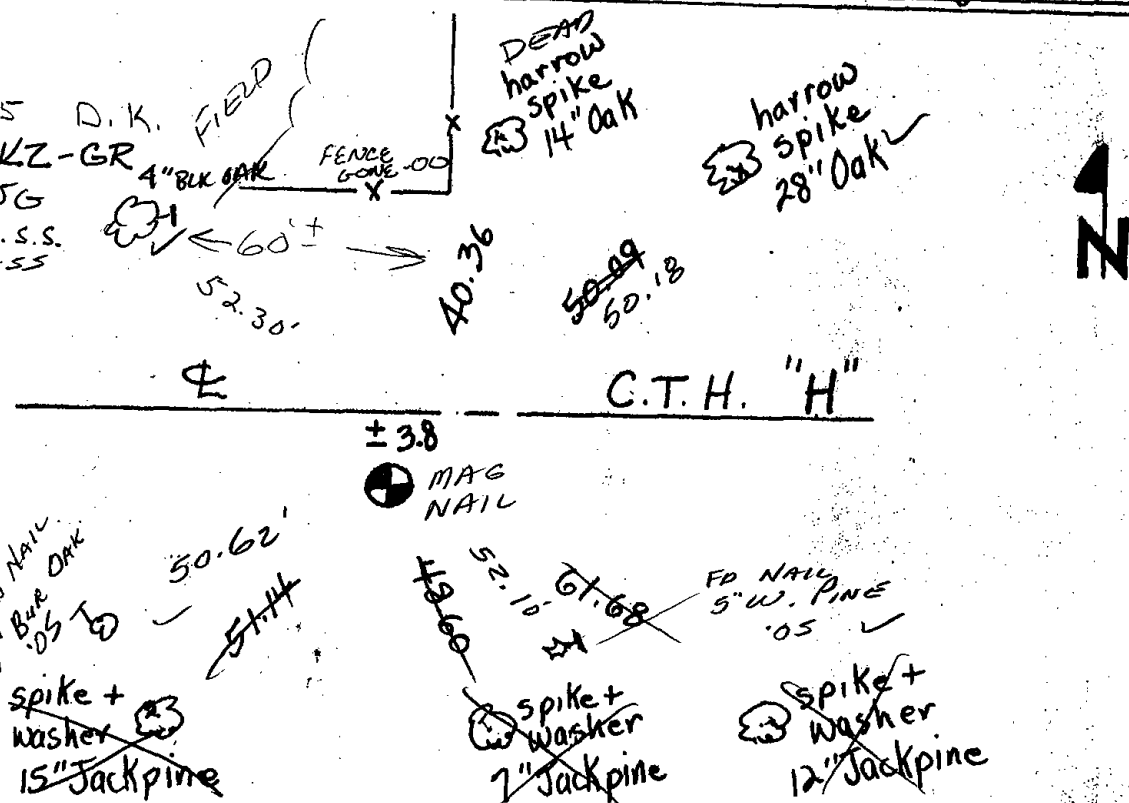 5 D.K.
KZ-GR
5G
.S.S.
-SS
FIELD
4" BLK OAK
FENCE
GONE -00
DEAD
harrow
spike
14" Oak
harrow
spike
28" Oak
60' ±
52.30'
40.36
50.09
50.18
N
℄
C.T.H. "H"
± 3.8
MAG
NAIL
NAIL
BUR OAK
'05
50.62'
51.14
48.60
52.10'
61.68
FD NAIL
5" W. PINE
'05
spike +
washer
15" Jackpine
spike +
washer
7" Jackpine
spike +
washer
12" Jackpine